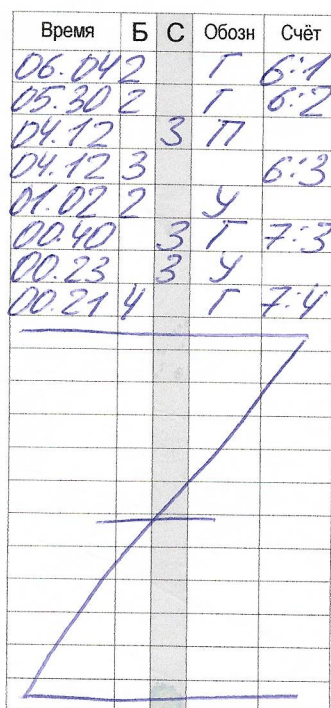 Время Б С Обозн Счёт
06.04 2 Г 6:1
05.30 2 Г 6:2
04.12 3 П
04.12 3 6:3
01.02 2 У
00.40 3 Г 7:3
00.23 3 У
00.21 4 Г 7:4